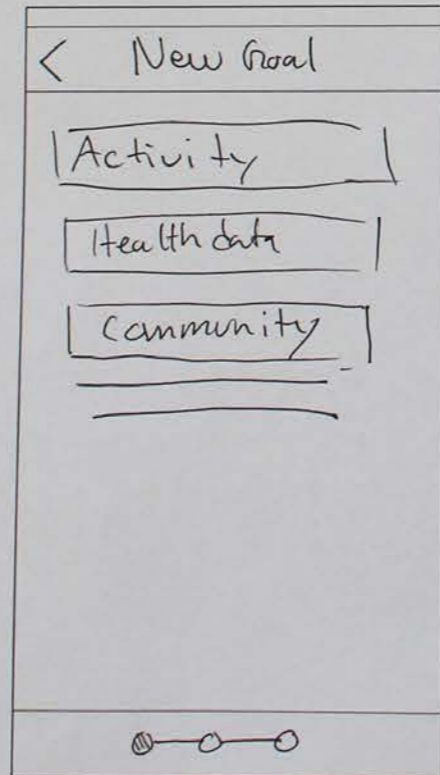 < New Goal
Activity
Health data
Community